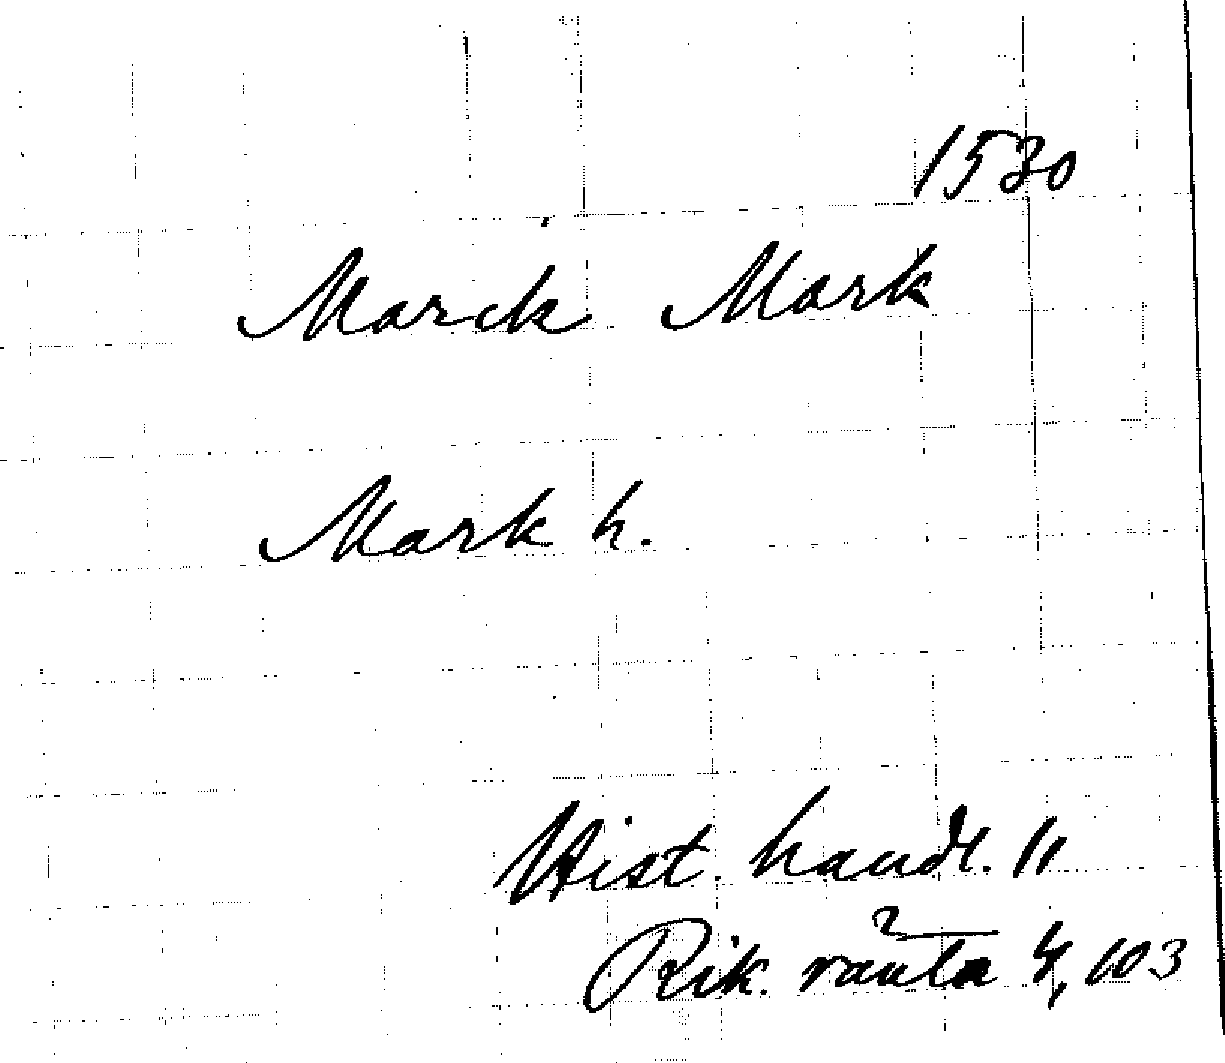 1530
Marck Mark
Mark h.
Hist. handl. 11
Rik. ränta 4, 103